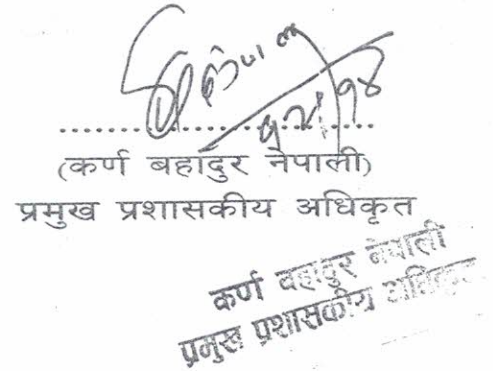 (कर्ण बहादुर नेपाली)
प्रमुख प्रशासकीय अधिकृत
कर्ण बहादुर नेपाली
प्रमुख प्रशासकीय अधिकृत